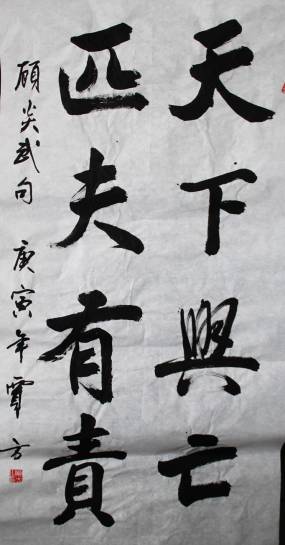 天下興亡
匹夫有責
顧炎武句 庚寅年 方